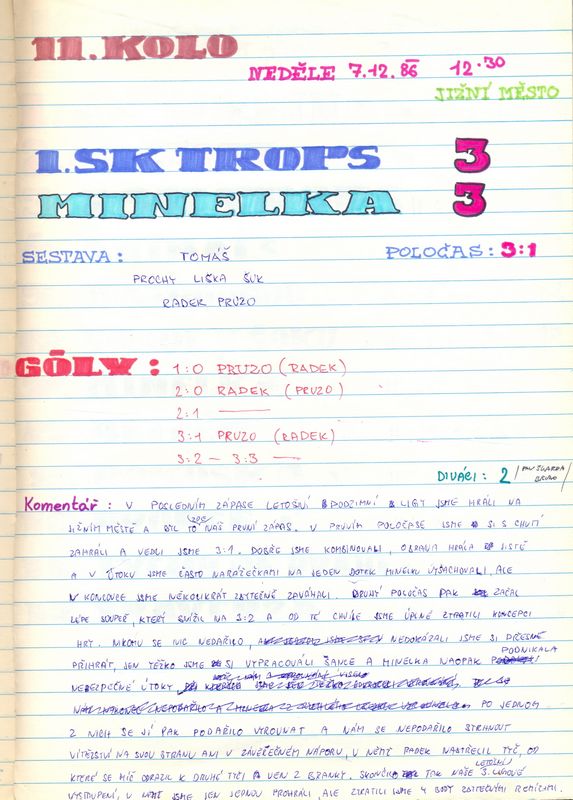 11. KOLO
NEDĚLE 7.12.86 12.30
JIŽNÍ MĚSTO
1. SK TROPS 3
MINELKA 3
SESTAVA: TOMÁŠ POLOČAS: 3:1
PROCHY LIŠKA ŠUK
RADEK PRUZO
GÓLY:
1:0 PRUZO (RADEK)
2:0 RADEK (PRUZO)
2:1 —
3:1 PRUZO (RADEK)
3:2 – 3:3 —
DIVÁCI: 2
Komentář: V POSLEDNÍM ZÁPASE LETOŠNÍ PODZIMNÍ LIGY JSME HRÁLI NA
JIŽNÍM MĚSTĚ A BYL TO ZDE NÁŠ PRVNÍ ZÁPAS. V PRVNÍM POLOČASE JSME SI S CHUTÍ
ZAHRÁLI A VEDLI JSME 3:1. DOBŘE JSME KOMBINOVALI, OBRANA HRÁLA JISTĚ
A V ÚTOKU JSME ČASTO NARÁŽEČKAMI NA JEDEN DOTEK MINELKU VYŠACHOVALI, ALE
V KONCOVCE JSME NĚKOLIKRÁT ZBYTEČNĚ ZAVÁHALI. DRUHÝ POLOČAS PAK ZAČAL
LÉPE SOUPEŘ, KTERÝ SNÍŽIL NA 3:2 A OD TÉ CHVÍLE JSME ÚPLNĚ ZTRATILI KONCEPCI
HRY. NIKOMU SE NIC NEDAŘILO, NEDOKÁZALI JSME SI PŘESNĚ
PŘIHRÁT, JEN TĚŽKO JSME SI VYPRACOVALI ŠANCE A MINELKA NAOPAK PODNIKALA
NEBEZPEČNÉ ÚTOKY
PO JEDNOM
Z NICH SE JÍ PAK PODAŘILO VYROVNAT A NÁM SE NEPODAŘILO STRHNOUT
VÍTĚZSTVÍ NA SVOU STRANU ANI V ZÁVĚREČNÉM NÁPORU, V NĚMŽ RADEK NASTŘELIL TYČ, OD
KTERÉ SE MÍČ ODRAZIL K DRUHÉ TYČI A VEN Z BRANKY. SKONČILO TAK NAŠE LETOŠNÍ 3. LIGOVÉ
VYSTOUPENÍ, V NĚMŽ JSME JEN JEDNOU PROHRÁLI, ALE ZTRATILI JSME 4 BODY ZBYTEČNÝMI REMÍZAMI.